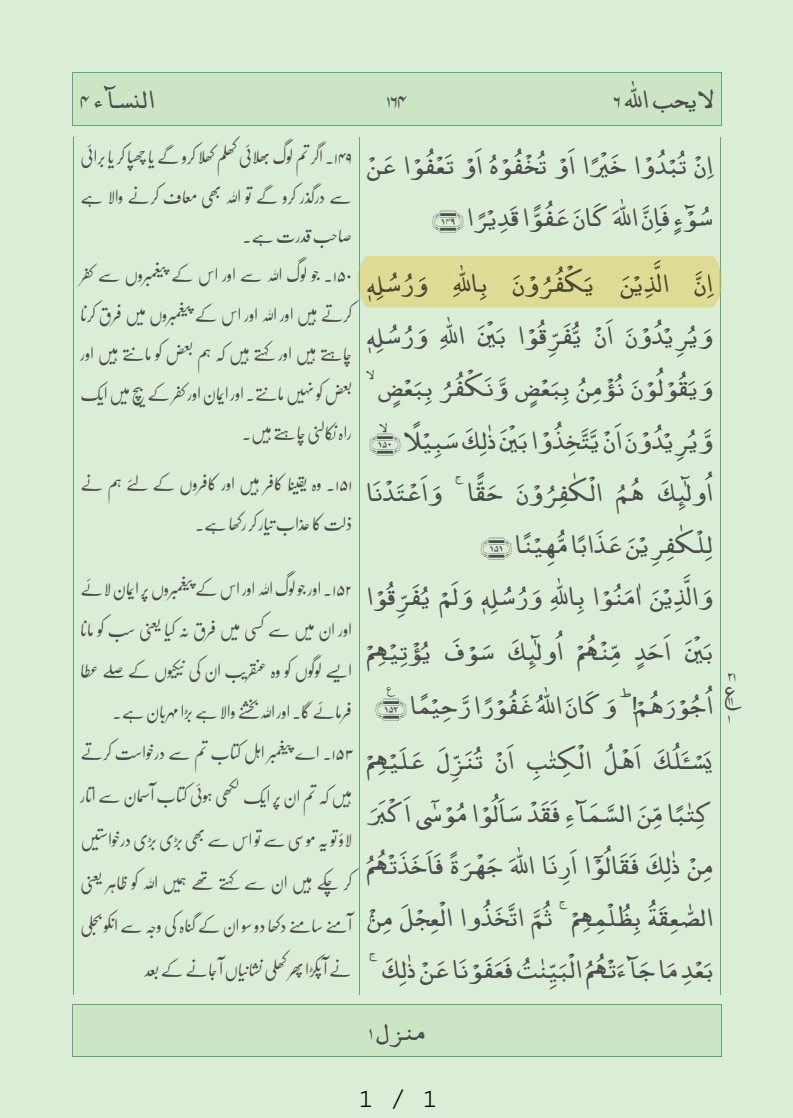 لا یحب الله ۶
۱۶۴
النسآء ۴
اِنْ تُبْدُوْا خَيْرًا اَوْ تُخْفُوْهُ اَوْ تَعْفُوْا عَنْ
سُوْٓءٍ فَاِنَّ اللّٰهَ كَانَ عَفُوًّا قَدِيْرًا ۝۱۴۹
اِنَّ الَّذِيْنَ يَكْفُرُوْنَ بِاللّٰهِ وَرُسُلِهٖ
وَيُرِيْدُوْنَ اَنْ يُّفَرِّقُوْا بَيْنَ اللّٰهِ وَرُسُلِهٖ
وَيَقُوْلُوْنَ نُؤْمِنُ بِبَعْضٍ وَّنَكْفُرُ بِبَعْضٍ ۙ
وَّيُرِيْدُوْنَ اَنْ يَّتَّخِذُوْا بَيْنَ ذٰلِكَ سَبِيْلًا ۙ۝۱۵۰
اُولٰٓئِكَ هُمُ الْكٰفِرُوْنَ حَقًّا ۚ وَاَعْتَدْنَا
لِلْكٰفِرِيْنَ عَذَابًا مُّهِيْنًا ۝۱۵۱
وَالَّذِيْنَ اٰمَنُوْا بِاللّٰهِ وَرُسُلِهٖ وَلَمْ يُفَرِّقُوْا
بَيْنَ اَحَدٍ مِّنْهُمْ اُولٰٓئِكَ سَوْفَ يُؤْتِيْهِمْ
اُجُوْرَهُمْ ؕ وَكَانَ اللّٰهُ غَفُوْرًا رَّحِيْمًا ۝۱۵۲
يَسْـَٔلُكَ اَهْلُ الْكِتٰبِ اَنْ تُنَزِّلَ عَلَيْهِمْ
كِتٰبًا مِّنَ السَّمَآءِ فَقَدْ سَاَلُوْا مُوْسٰٓى اَكْبَرَ
مِنْ ذٰلِكَ فَقَالُوْٓا اَرِنَا اللّٰهَ جَهْرَةً فَاَخَذَتْهُمُ
الصّٰعِقَةُ بِظُلْمِهِمْ ۚ ثُمَّ اتَّخَذُوا الْعِجْلَ مِنْۢ
بَعْدِ مَا جَآءَتْهُمُ الْبَيِّنٰتُ فَعَفَوْنَا عَنْ ذٰلِكَ ۚ
۲۱
ع
۱
۱۴۹۔ اگر تم لوگ بھلائی کھلم کھلا کرو گے یا چھپا کر یا برائی
سے درگذر کرو گے تو اللہ بھی معاف کرنے والا ہے
صاحب قدرت ہے۔
۱۵۰۔ جو لوگ اللہ سے اور اس کے پیغمبروں سے کفر
کرتے ہیں اور اللہ اور اس کے پیغمبروں میں فرق کرنا
چاہتے ہیں اور کہتے ہیں کہ ہم بعض کو مانتے ہیں اور
بعض کو نہیں مانتے۔ اور ایمان اور کفر کے بیچ میں ایک
راہ نکالنی چاہتے ہیں۔
۱۵۱۔ وہ یقینا کافر ہیں اور کافروں کے لئے ہم نے
ذلت کا عذاب تیار کر رکھا ہے۔
۱۵۲۔ اور جو لوگ اللہ اور اس کے پیغمبروں پر ایمان لائے
اور ان میں سے کسی میں فرق نہ کیا یعنی سب کو مانا
ایسے لوگوں کو وہ عنقریب ان کی نیکیوں کے صلے عطا
فرمائے گا۔ اور اللہ بخشنے والا ہے بڑا مہربان ہے۔
۱۵۳۔ اے پیغمبر اہل کتاب تم سے درخواست کرتے
ہیں کہ تم ان پر ایک لکھی ہوئی کتاب آسمان سے اتار
لاؤ تو یہ موسی سے تو اس سے بھی بڑی بڑی درخواستیں
کر چکے ہیں ان سے کہتے تھے ہمیں اللہ کو ظاہر یعنی
آمنے سامنے دکھا دو سو ان کے گناہ کی وجہ سے انکو بجلی
نے آپکڑا پھر کھلی نشانیاں آ جانے کے بعد
منزل ۱
1 / 1